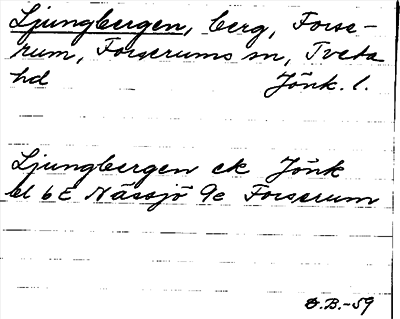 Ljungbergen, berg, Forse-
rum, Forserums sn, Tveta
hd Jönk. l.
Ljungbergen ek Jönk
bl 6E Nässjö 9e Forserum
O.B.-59